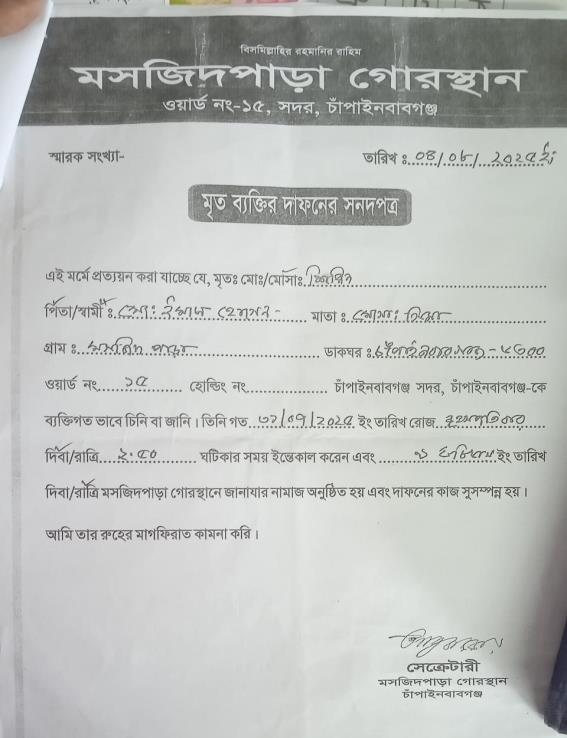 বিসমিল্লাহির রহমানির রাহিম
মসজিদপাড়া গোরস্থান
ওয়ার্ড নং-১৫, সদর, চাঁপাইনবাবগঞ্জ
স্মারক সংখ্যা-
তারিখ ঃ
মৃত ব্যক্তির দাফনের সনদপত্র
এই মর্মে প্রত্যয়ন করা যাচ্ছে যে, মৃতঃ মোঃ/মোসাঃ
পিতা/স্বামী ঃ মোঃ মাতা ঃ মোসাঃ
গ্রাম ঃ মসজিদ পাড়া ডাকঘর ঃ চাঁপাইনবাবগঞ্জ - ৬৩০০
ওয়ার্ড নং ১৫ হোল্ডিং নং চাঁপাইনবাবগঞ্জ সদর, চাঁপাইনবাবগঞ্জ-কে
ব্যক্তিগত ভাবে চিনি বা জানি। তিনি গত ইং তারিখ রোজ
দিবা/রাত্রি ঘটিকার সময় ইন্তেকাল করেন এবং ইং তারিখ
দিবা/রাত্রি মসজিদপাড়া গোরস্থানে জানাযার নামাজ অনুষ্ঠিত হয় এবং দাফনের কাজ সুসম্পন্ন হয়।
আমি তার রুহের মাগফিরাত কামনা করি।
সেক্রেটারী
মসজিদপাড়া গোরস্থান
চাঁপাইনবাবগঞ্জ